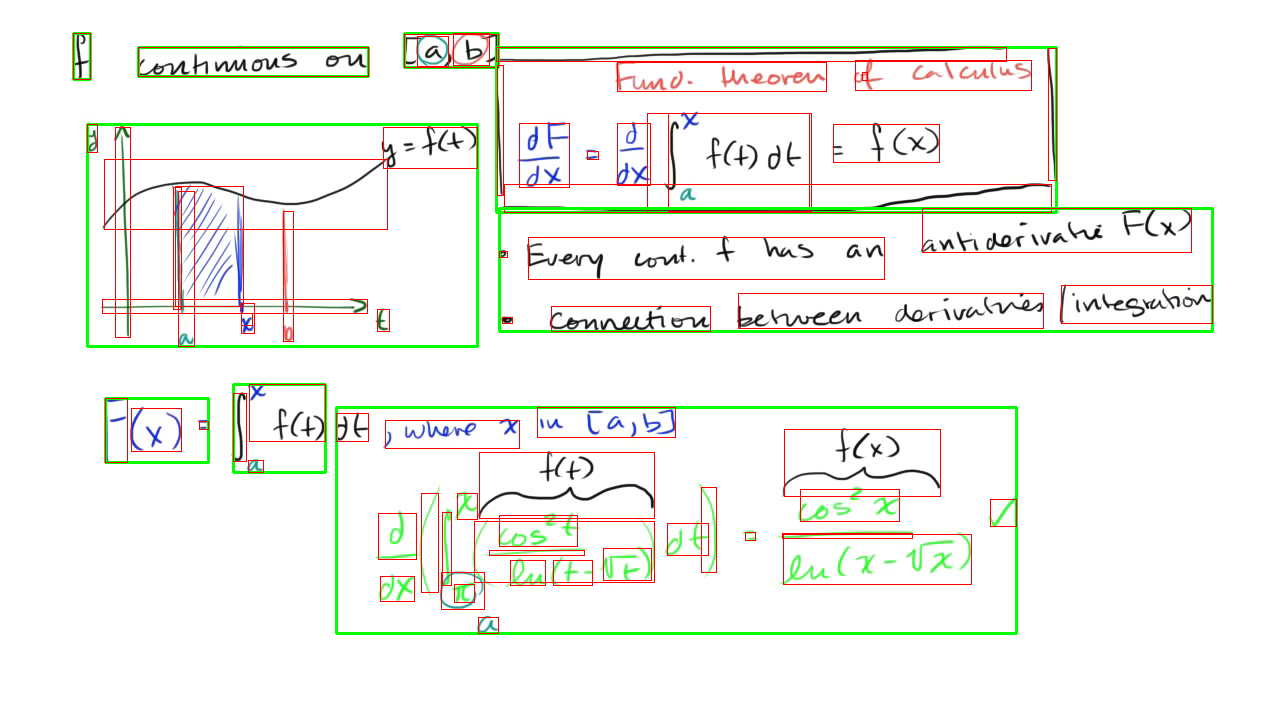 f continuous on [a, b]
Fund. theorem of calculus
dF/dx = d/dx ∫_a^x f(t) dt = f(x)
y
y = f(t)
a x b
t
• Every cont. f has an antiderivative F(x)
• connection between derivatives / integration
F(x) = ∫_a^x f(t) dt, where x in [a, b]
f(t) f(x)
d/dx ( ∫_π^x ( cos² t / ln(t - √t) ) dt ) = cos² x / ln(x - √x) ✓
a